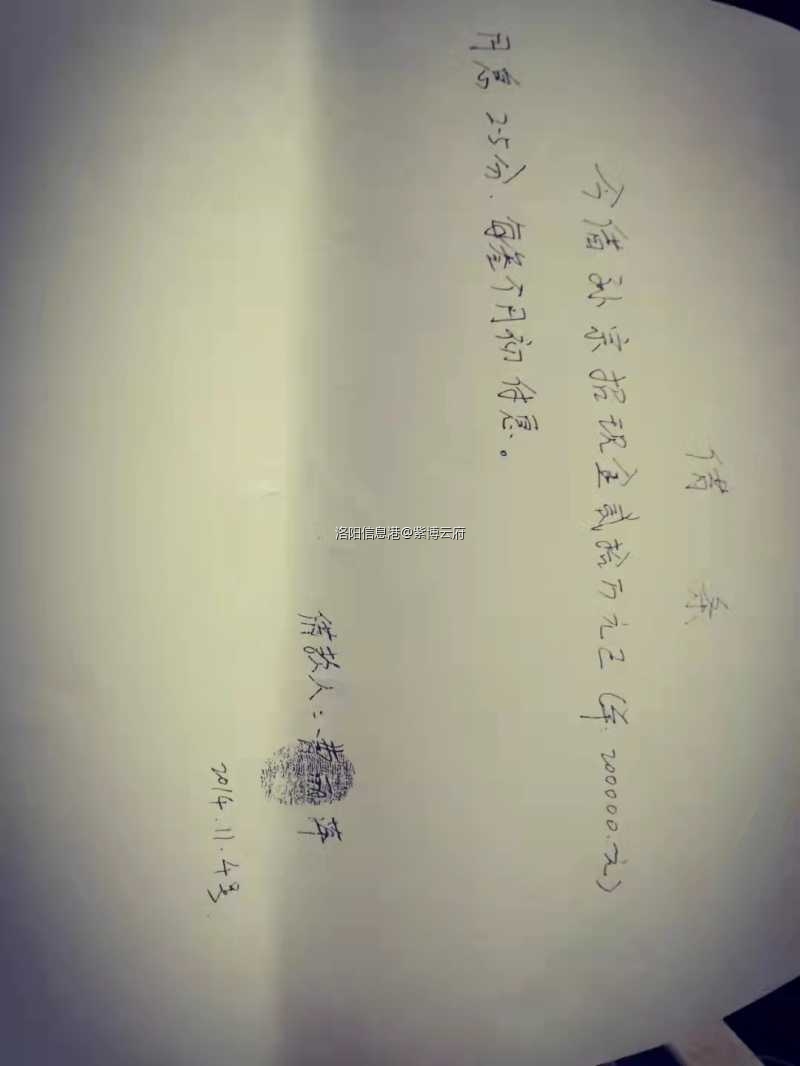 借条
今借孙宗招现金贰拾万元已(洋:200000.元)
月息2.5分.每叁个月初付息。
借款人:黄丽萍
2014.11.4号.
洛阳信息港@紫博云府